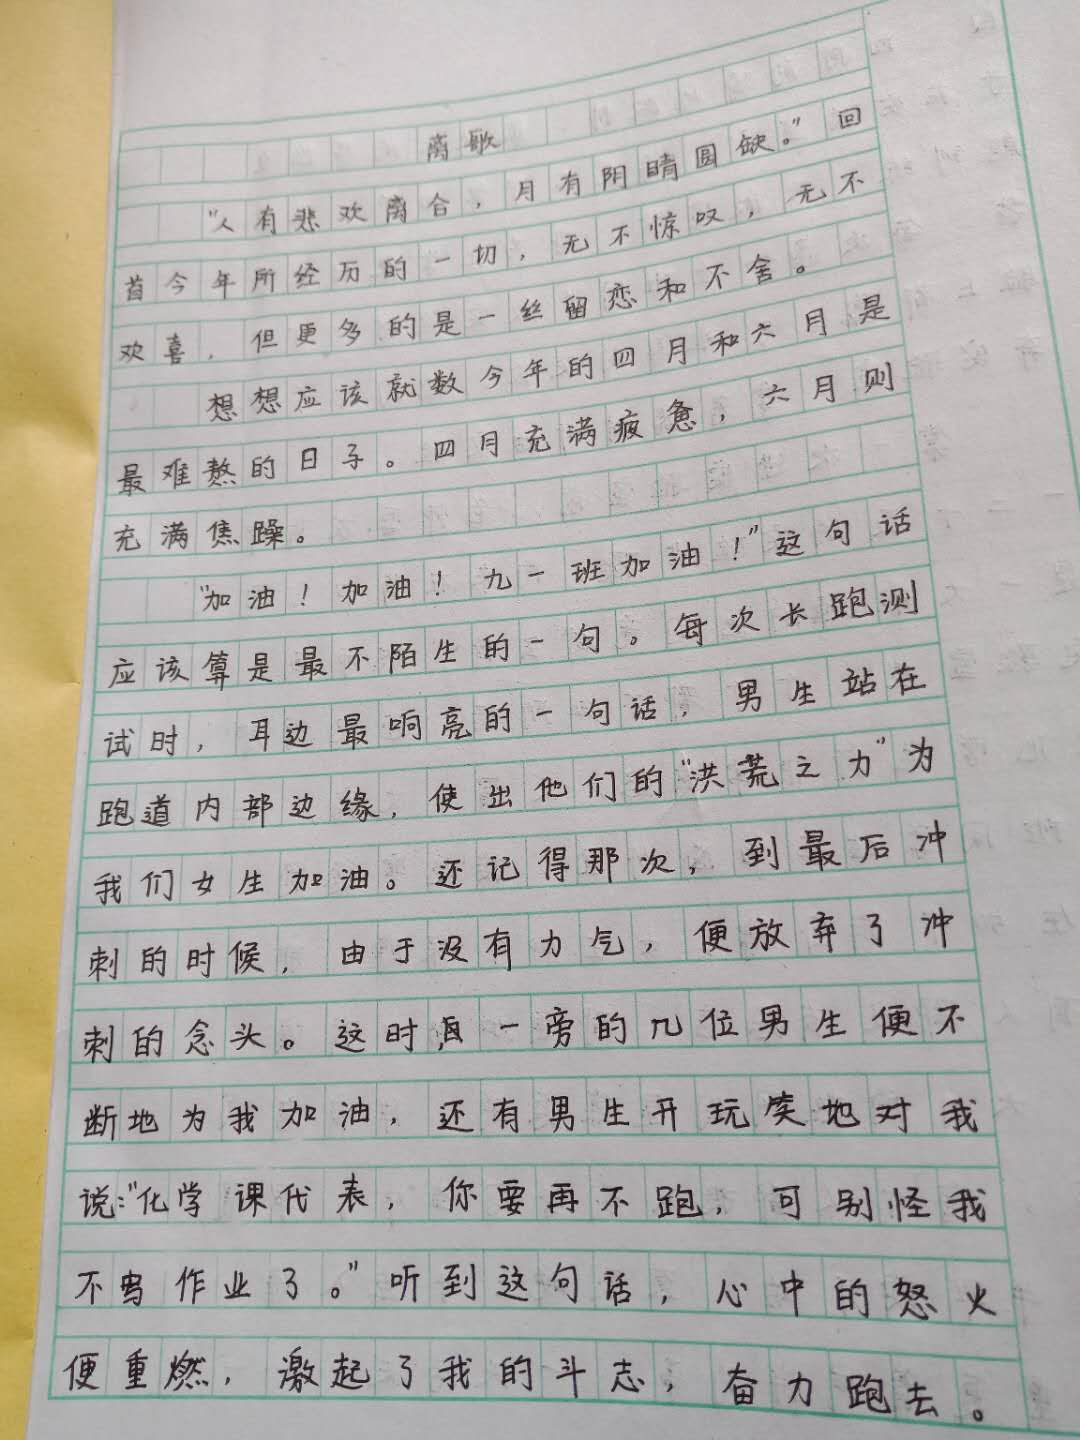 离歌
"人有悲欢离合，月有阴晴圆缺。"回
首今年所经历的一切，无不惊叹，无不
欢喜，但更多的是一丝留恋和不舍。
想想应该就数今年的四月和六月是
最难熬的日子。四月充满疲惫，六月则
充满焦躁。
"加油！加油！九一班加油！"这句话
应该算是最不陌生的一句。每次长跑测
试时，耳边最响亮的一句话，男生站在
跑道内部边缘，使出他们的"洪荒之力"为
我们女生加油。还记得那次，到最后冲
刺的时候，由于没有力气，便放弃了冲
刺的念头。这时，一旁的几位男生便不
断地为我加油，还有男生开玩笑地对我
说："化学课代表，你要再不跑，可别怪我
不写作业了。"听到这句话，心中的怒火
便重燃，激起了我的斗志，奋力跑去。